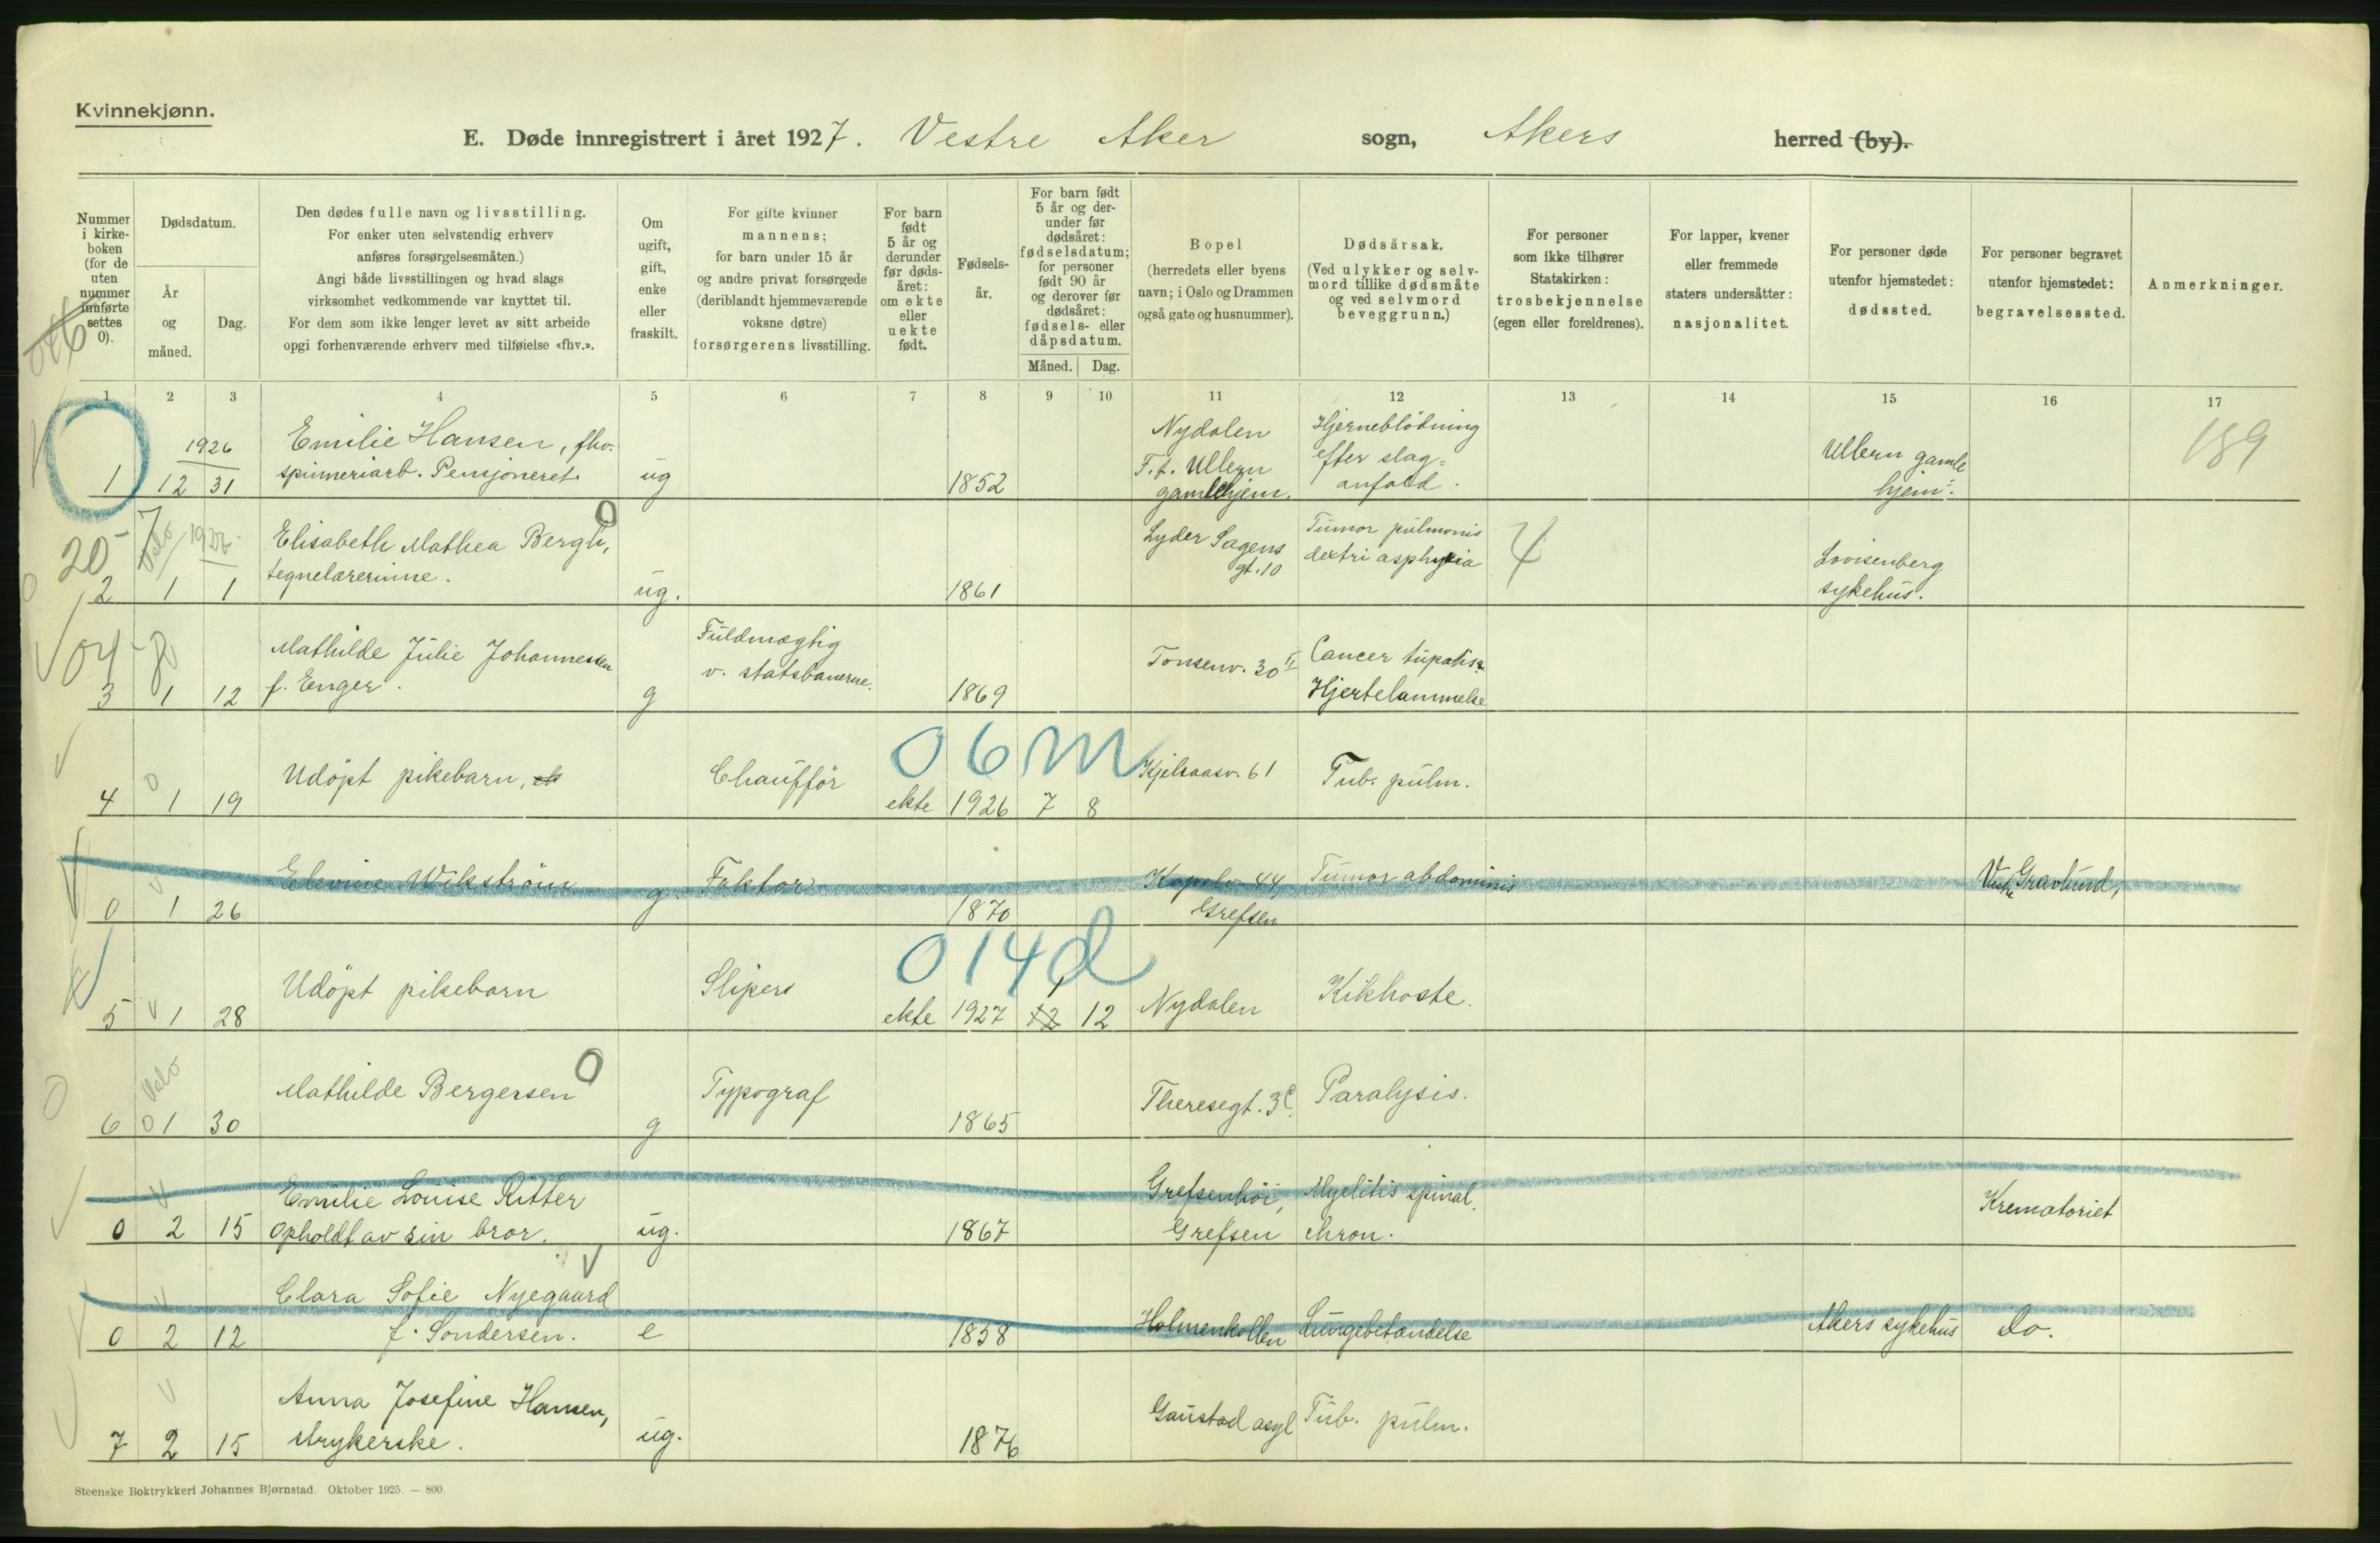 Kvinnekjønn.
E. Døde innregistrert i året 1927. Vestre Aker sogn, Akers herred (by).
Nummer i kirke-boken (for de uten nummer innførte settes 0).
Dødsdatum.
År og måned.
Dag.
Den dødes fulle navn og livsstilling.
For enker uten selvstendig erhverv
anføres forsørgelsesmåten.)
Angi både livsstillingen og hvad slags
virksomhet vedkommende var knyttet til.
For dem som ikke lenger levet av sitt arbeide
opgi forhenværende erhverv med tilføielse «fhv.».
Om ugift, gift, enke eller fraskilt.
For gifte kvinner
mannens;
for barn under 15 år
og andre privat forsørgede
(deriblandt hjemmeværende
voksne døtre)
forsørgerens livsstilling.
For barn født 5 år og derunder før døds-året: om ekte eller uekte født.
Fødsels-år.
For barn født 5 år og der-under før dødsåret: fødselsdatum; for personer født 90 år og derover før dødsåret: fødsels- eller dåpsdatum.
Måned. Dag.
Bopel
(herredets eller byens
navn; i Oslo og Drammen
også gate og husnummer).
Dødsårsak.
(Ved ulykker og selv-
mord tillike dødsmåte
og ved selvmord
beveggrunn.)
For personer
som ikke tilhører
Statskirken:
trosbekjennelse
(egen eller foreldrenes).
For lapper, kvener
eller fremmede
staters undersåtter:
nasjonalitet.
For personer døde
utenfor hjemstedet:
dødssted.
For personer begravet
utenfor hjemstedet:
begravelsessted.
Anmerkninger.
1 2 3 4 5 6 7 8 9 10 11 12 13 14 15 16 17
1926
1 12 31 Emilie Hansen, fhv.
spinneriarb. Pensjoneret. ug 1852 Nydalen
F.t. Ullern
gamlehjem. Hjerneblödning
efter slag=
anfald. Ullern gamle
hjem. 189
20 Oslo 192
2 1 1 Elisabeth Mathea Bergh, 0
tegnelærerinne. ug. 1861 Lyder Sagens
gt. 10 Tumor pulmonis
dextri asphyxia 4 Lovisenberg
sykehus.
04
3 1 12 Mathilde Julie Johannessen
f. Enger. g Fuldmægtig
v. statsbanerne. 1869 Tonsenv. 30 II Cancer
Hjertelammelse
06m
4 0 1 19 Udöpt pikebarn, Chaufför ekte 1926 7 8 Kjelsaasv. 61 Tub. pulm.
0 1 26 Elevine Wikström g. Faktor 1870 44
Grefsen Tumor abdominis Vestre Gravlund,
014d
5 1 28 Udöpt pikebarn Slipers ekte 1927 12 1 12 Nydalen Kikhoste.
Oslo
6 0 1 30 Mathilde Bergersen 0 g Typograf 1865 Theresegt. 3c. Paralysis.
0 2 15 Emilie Louise Ritter
Opholdt av sin bror. ug. 1867 Grefsenhöi,
Grefsen Myelitis spinal.
chron. Krematoriet
0 2 12 Clara Sofie Nyegaard
f. Sondersen. e 1858 Holmenkollen Lungebetændelse Akers sykehus do.
7 2 15 Anna Josefine Hansen,
strykerske. ug. 1876 Gaustad asyl Tub. pulm.
Steenske Boktrykkeri Johannes Bjørnstad. Oktober 1925. — 800.